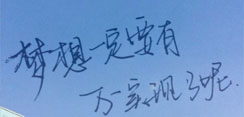 梦想一定要有
万一实现了呢.